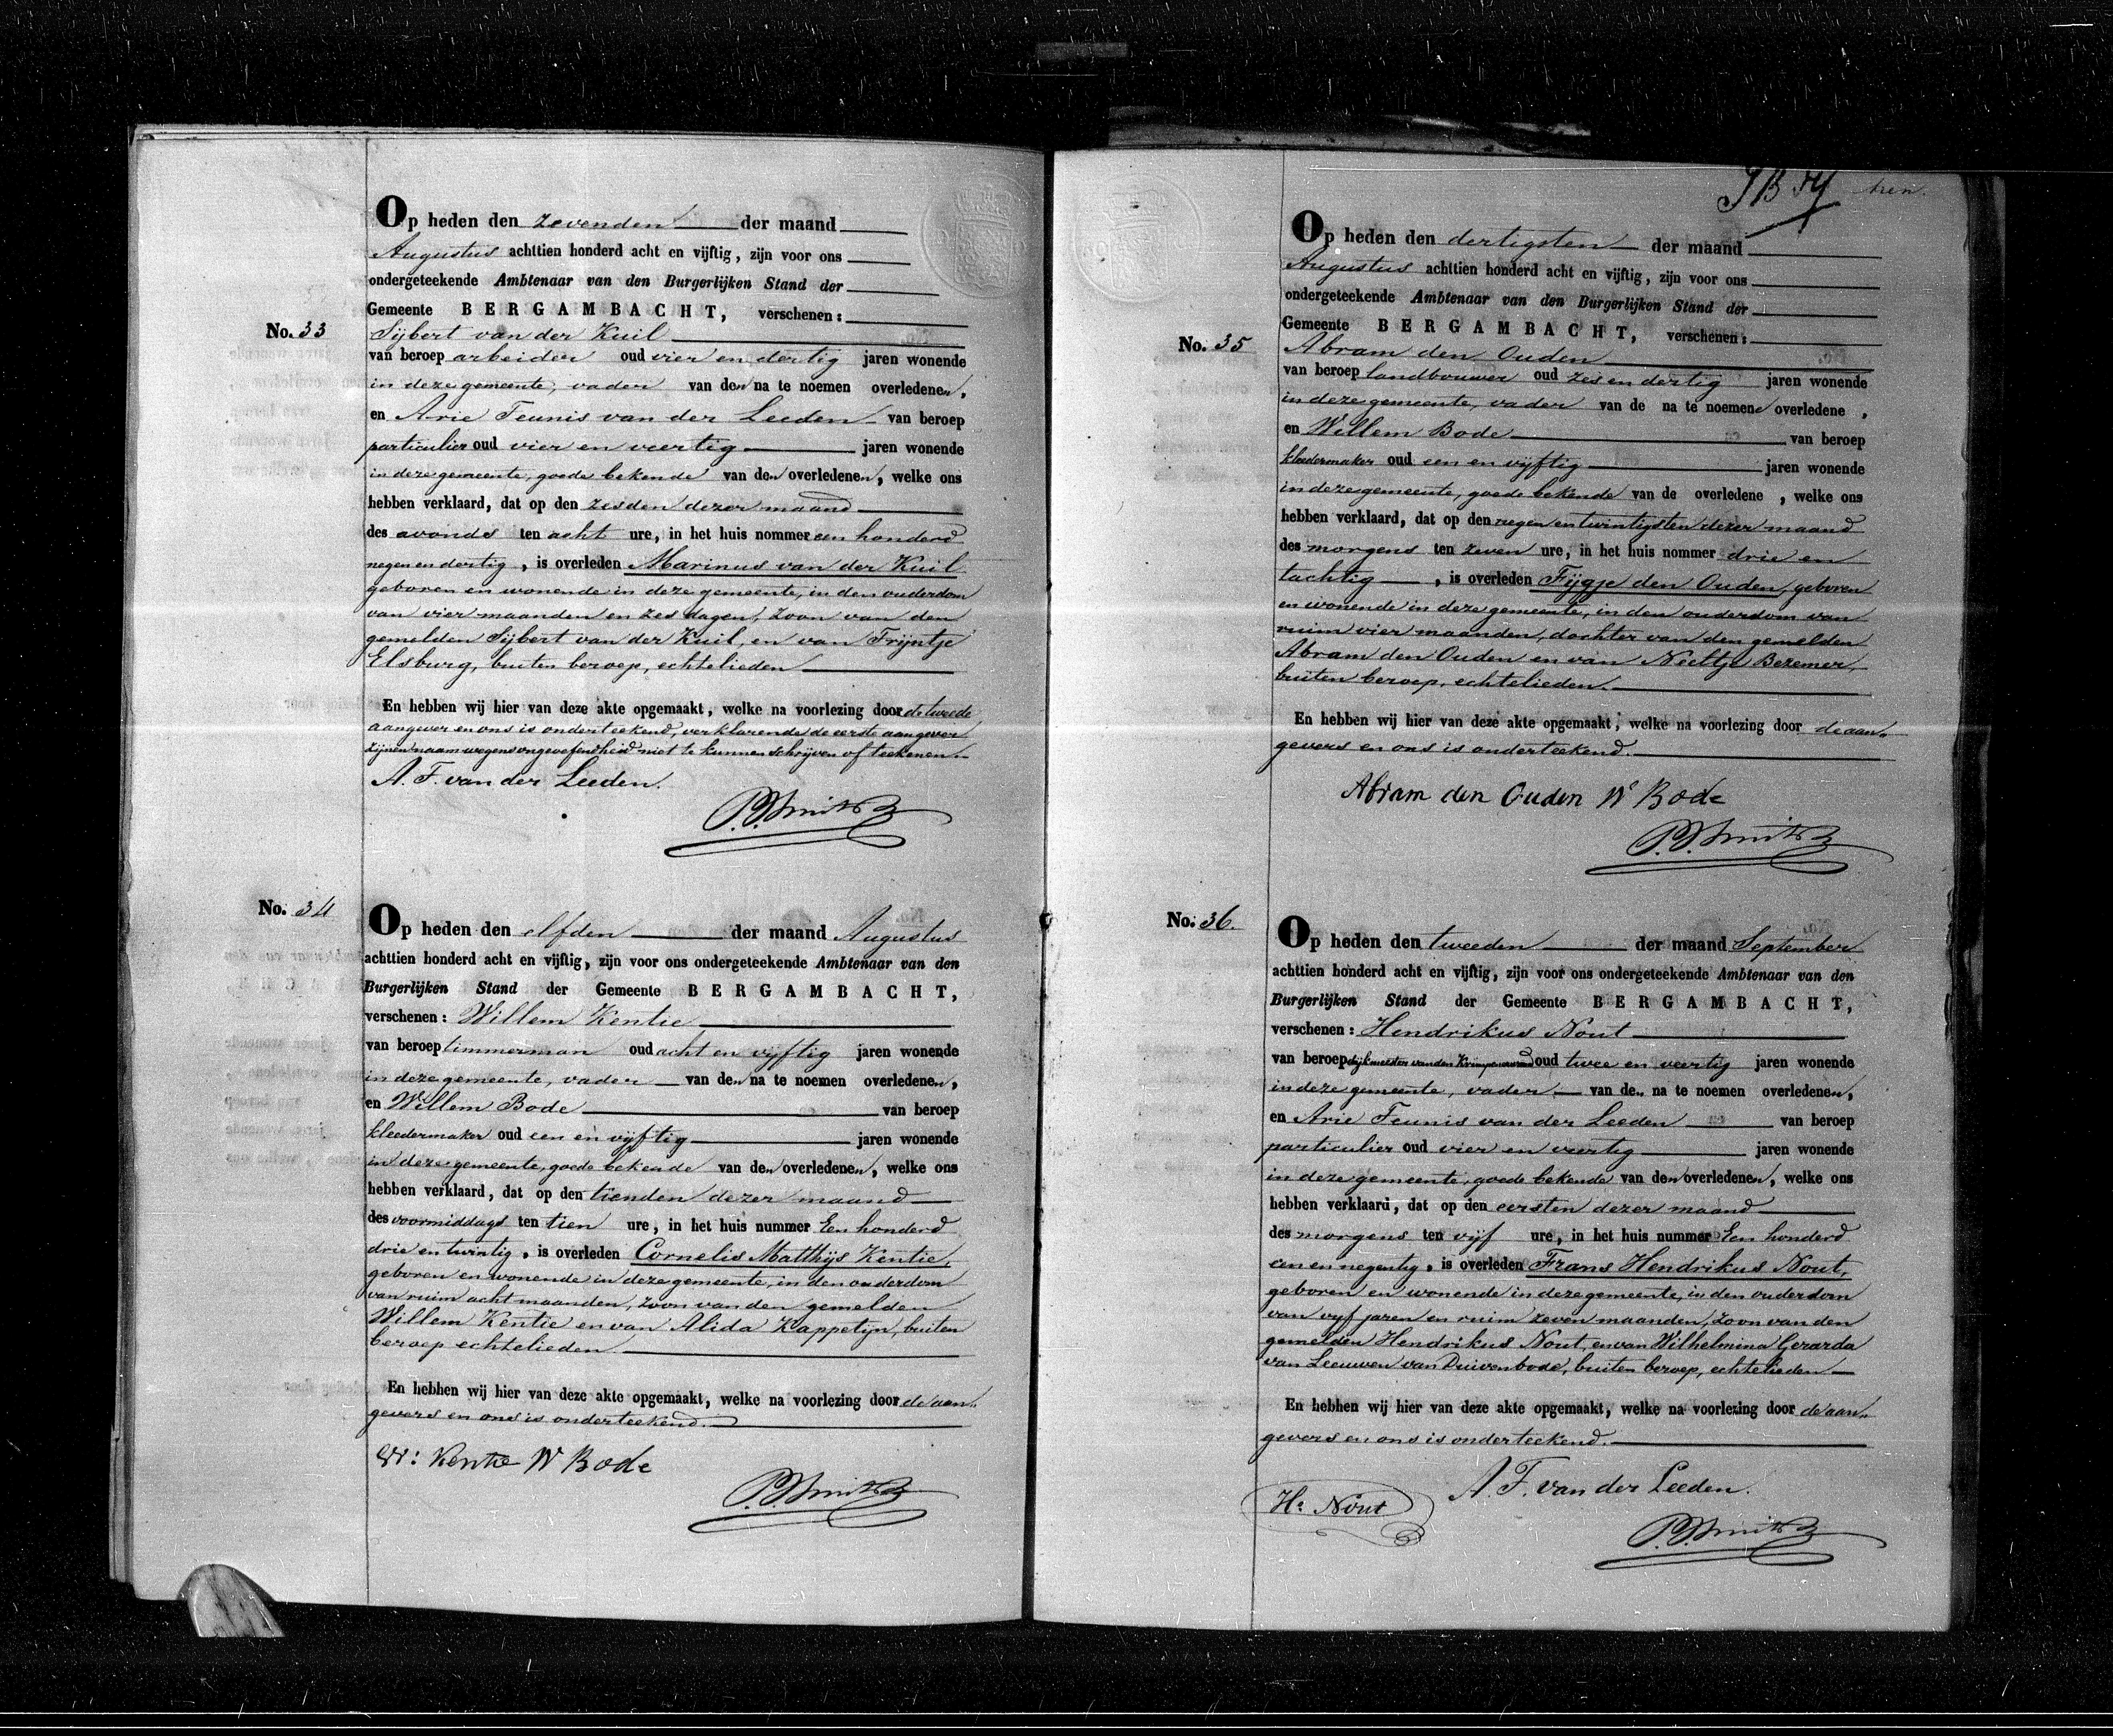 No. 33
Op heden den zevenden der maand
Augustus achttien honderd acht en vijftig, zijn voor ons
ondergeteekende Ambtenaar van den Burgerlijken Stand der
Gemeente BERGAMBACHT, verschenen:
Sijbert van der Kuil
van beroep arbeider oud vier en dertig jaren wonende
in deze gemeente, vader van den na te noemen overledenen,
en Arie Teunis van der Leeden van beroep
particulier oud vier en veertig jaren wonende
in deze gemeente, goede bekende van den overledenen, welke ons
hebben verklaard, dat op den zesden dezer maand
des avonds ten acht ure, in het huis nommer een honderd
negen en dertig, is overleden Marinus van der Kuil
geboren en wonende in deze gemeente, in den ouderdom
van vier maanden en zes dagen, zoon van den
gemelden Sijbert van der Kuil, en van Trijntje
Elsburg, buiten beroep, echtelieden
En hebben wij hier van deze akte opgemaakt, welke na voorlezing door de tweede
aangever en ons is onderteekend, verklarende de eerste aangever
zijnen naam wegens ongeoefendheid niet te kunnen schrijven of teekenen.
A. T. van der Leeden.
P. Smits
No. 34
Op heden den elfden der maand Augustus
achttien honderd acht en vijftig, zijn voor ons ondergeteekende Ambtenaar van den
Burgerlijken Stand der Gemeente BERGAMBACHT,
verschenen: Willem Kentie
van beroep timmerman oud acht en vijftig jaren wonende
in deze gemeente, vader van den na te noemen overledenen,
en Willem Bode van beroep
kleedermaker oud een en vijftig jaren wonende
in deze gemeente, goede bekende van den overledenen, welke ons
hebben verklaard, dat op den tienden dezer maand
des voormiddags ten tien ure, in het huis nummer Een honderd
drie en twintig, is overleden Cornelis Matthijs Kentie,
geboren en wonende in deze gemeente, in den ouderdom
van ruim acht maanden, zoon van den gemelden
Willem Kentie en van Alida Kappetijn, buiten
beroep echtelieden
En hebben wij hier van deze akte opgemaakt, welke na voorlezing door de aan-
gevers en ons is onderteekend.
W: Kentie W Bode
P. Smits
No. 35
Op heden den dertigsten der maand
Augustus achttien honderd acht en vijftig, zijn voor ons
ondergeteekende Ambtenaar van den Burgerlijken Stand der
Gemeente BERGAMBACHT, verschenen:
Abram den Ouden
van beroep landbouwer oud zes en dertig jaren wonende
in deze gemeente, vader van de na te noemene overledene,
en Willem Bode van beroep
kleedermaker oud een en vijftig jaren wonende
in deze gemeente, goede bekende van de overledene, welke ons
hebben verklaard, dat op den negen en twintigsten dezer maand
des morgens ten zeven ure, in het huis nommer drie en
tachtig, is overleden Fijgje den Ouden, geboren
en wonende in deze gemeente, in den ouderdom van
ruim vier maanden, dochter van den gemelden
Abram den Ouden en van Neeltje Bezemer,
buiten beroep, echtelieden.
En hebben wij hier van deze akte opgemaakt, welke na voorlezing door de aan-
gevers en ons is onderteekend.
Abram den Ouden W Bode
P. Smits
No. 36.
Op heden den tweeden der maand September
achttien honderd acht en vijftig, zijn voor ons ondergeteekende Ambtenaar van den
Burgerlijken Stand der Gemeente BERGAMBACHT,
verschenen: Hendrikus Nout
van beroep dijkmeester van den Krimpenerwaard oud twee en veertig jaren wonende
in deze gemeente, vader van de.. na te noemen overledenen,
en Arie Teunis van der Leeden van beroep
particulier oud vier en veertig jaren wonende
in deze gemeente, goede bekende van den overledenen, welke ons
hebben verklaard, dat op den eersten dezer maand
des morgens ten vijf ure, in het huis nummer Een honderd
een en negentig, is overleden Frans Hendrikus Nout,
geboren en wonende in deze gemeente, in den ouderdom
van vijf jaren en ruim zeven maanden, zoon van den
gemelden Hendrikus Nout, en van Wilhelmina Gerarda
van Leeuwen van Duivenbode, buiten beroep, echtelieden
En hebben wij hier van deze akte opgemaakt, welke na voorlezing door de aan-
gevers en ons is onderteekend.
Hs Nout A. T. van der Leeden.
P. Smits